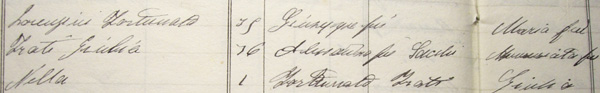 Lorenzini Fortunato 75 Giuseppe fu Maria fu
Frati Giulia 76 Alessandro fu Annunziata fu
Nella 1 Fortunato Frati Giulia